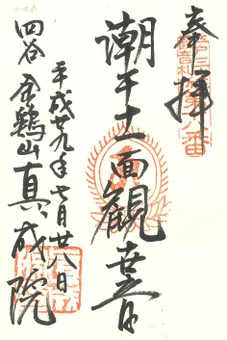 奉拝
潮干十一面観世音
平成廿九年七月廿八日
四谷 金鶏山 真成院